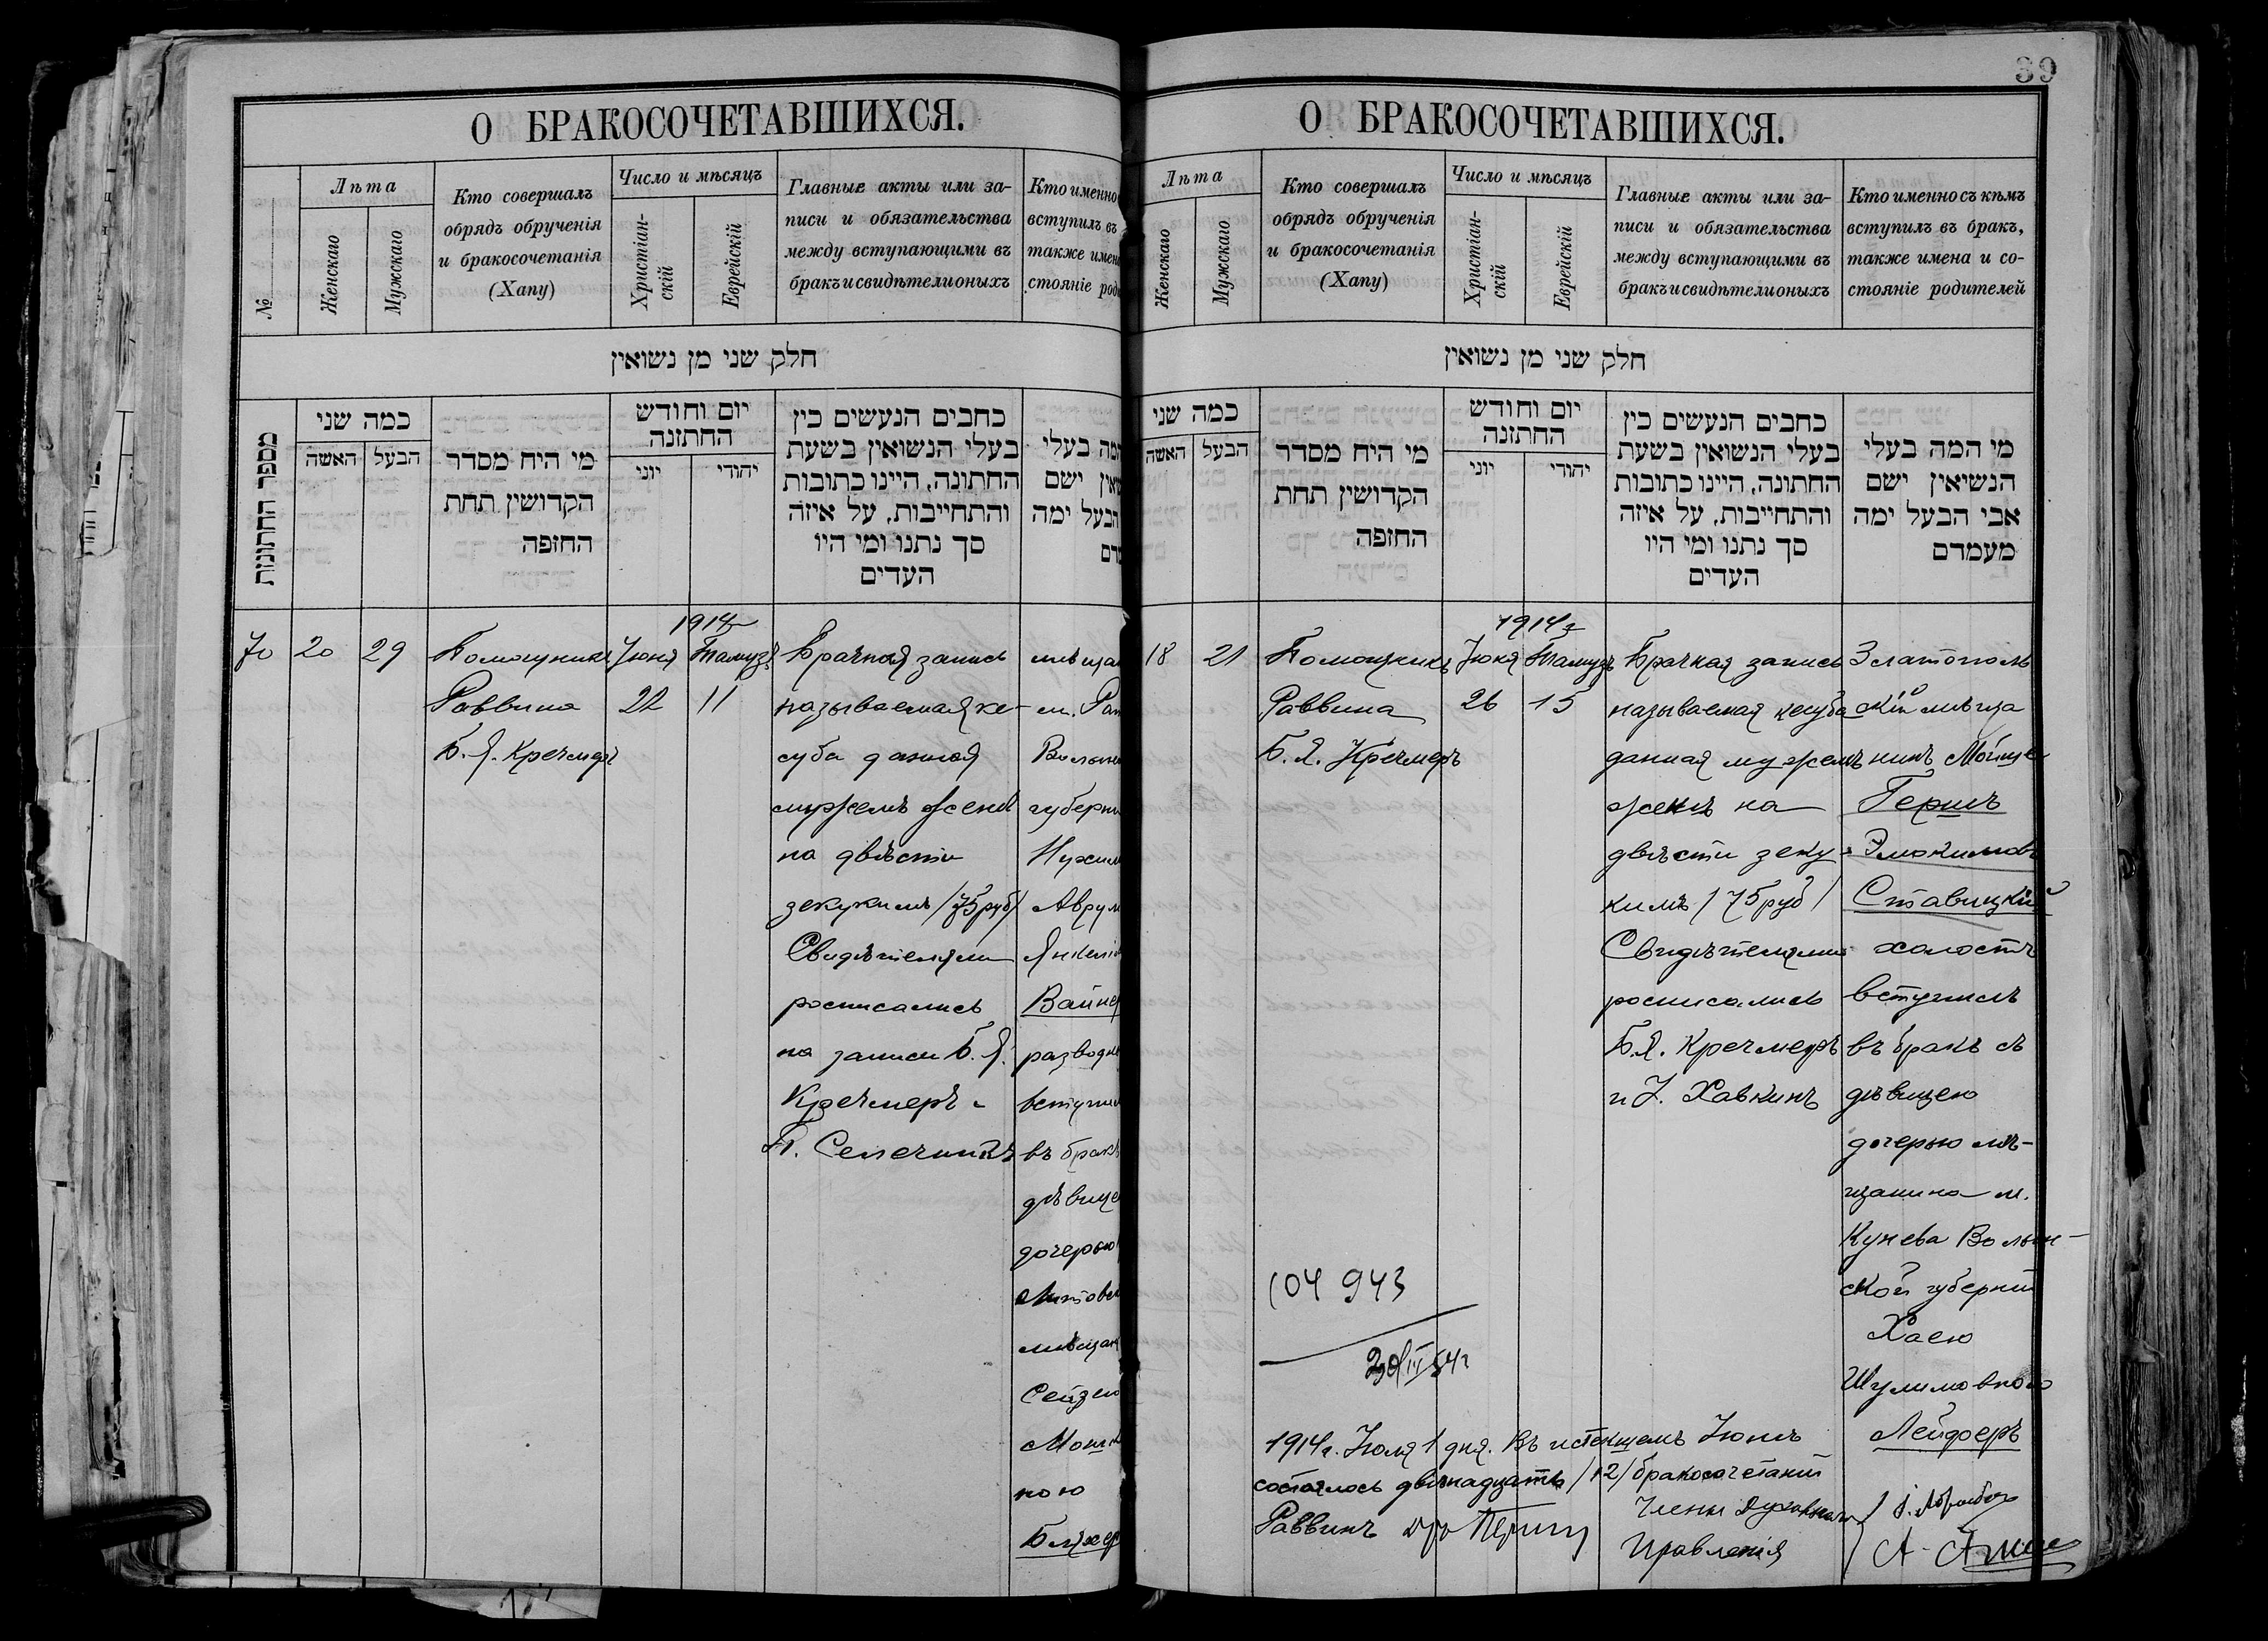 39
О БРАКОСОЧЕТАВШИХСЯ.
№
Лѣта
Женскаго
Мужскаго
Кто совершалъ
обрядъ обрученія
и бракосочетанія
(Хапу)
Число и мѣсяцъ
Христіан-
скій
Еврейскій
Главные акты или за-
писи и обязательства
между вступающими въ
бракъ и свидѣтели оныхъ
Кто именно
вступилъ въ
также имен
стояніе род
חלק שני מן נשואין
מספר החתונות
כמה שני
האשה
הבעל
מי היח מסדר
הקדושין תחת
החופה
יום וחודש
החתונה
יוני
יהודי
כתבים הנעשים בין
בעלי הנשואין בשעת
החתונה, היינו כתובות
והתחייבות, על איזה
סך נתנו ומי היו
העדים
המה בעלי
ישם
הבעל ימה
70
20
29
Помощникъ
Раввина
Б. Я. Кречмеръ
1914 г
Іюня
22
Тамузъ
11
Брачная запись
называемая ке-
суба данная
мужемъ женѣ
на двѣсти
зекукимъ /75 руб/
Свидѣтелями
росписались
на записи Б. Я.
Кречмеръ и
мѣщан
м.
Волын
губерні
Нухим
Аврум
Янкелев
Вайне
разводн
вступил
въ бракъ
дѣвице
дочерью
мѣщан
ною
О БРАКОСОЧЕТАВШИХСЯ.
Лѣта
Женскаго
Мужскаго
Кто совершалъ
обрядъ обрученія
и бракосочетанія
(Хапу)
Число и мѣсяцъ
Христіан-
скій
Еврейскій
Главные акты или за-
писи и обязательства
между вступающими въ
бракъ и свидѣтели оныхъ
Кто именно съ кѣмъ
вступилъ въ бракъ,
также имена и со-
стояніе родителей
חלק שני מן נשואין
כמה שני
האשה
הבעל
מי היח מסדר
הקדושין תחת
החופה
יום וחודש
החתונה
יוני
יהודי
כתבים הנעשים בין
בעלי הנשואין בשעת
החתונה, היינו כתובות
והתחייבות, על איזה
סך נתנו ומי היו
העדים
מי המה בעלי
הנשיאין ישם
אבי הבעל ימה
מעמדם
18
21
Помощникъ
Раввина
Б. Я. Кречмеръ
1914 г
Іюня
26
Тамузъ
15
Брачная запись
называемая кесуба
данная мужемъ
женѣ на
двѣсти зеку-
кимъ /75 руб/
Свидѣтелями
росписались
Б. Я. Кречмеръ
и І. Хавкинъ
Златополь
скій мѣща
нинъ Мойше
Гершъ
Ставицкій
холостъ
вступилъ
въ бракъ съ
дѣвицею
дочерью мѣ-
щанина м.
Кунева Волын-
ской губерніи
Хаею
Шулимовною
Лейферъ
104 943
1914 г. Іюля 1 дня. Въ истекшемъ Іюнѣ
состоялось двѣнадцать /12/ бракосочетаній
Раввинъ
Члены Духовнаго
Правленія